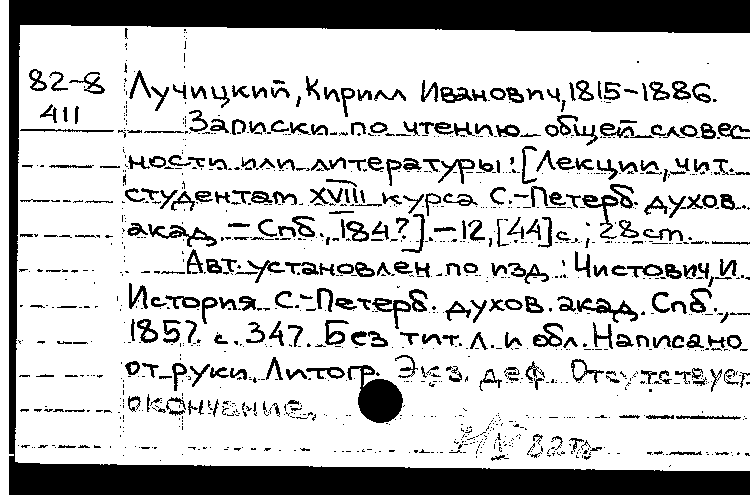 82-8 Лучицкий, Кирилл Иванович, 1815-1886.
411 Записки по чтению общей словес-
ности или литературы: [Лекции, чит.
студентам XVIII курса С.-Петерб. духов.
акад. - Спб., 1847]. - 12, [44] с.; 28 cm.
Авт. установлен по изд.: Чистович, И.
История С.-Петерб. духов. акад. Спб.,
1857. с. 347. Без тит. л. и обл. Написано
от руки. Литогр. Экз. деф. Отсутствует
окончание.